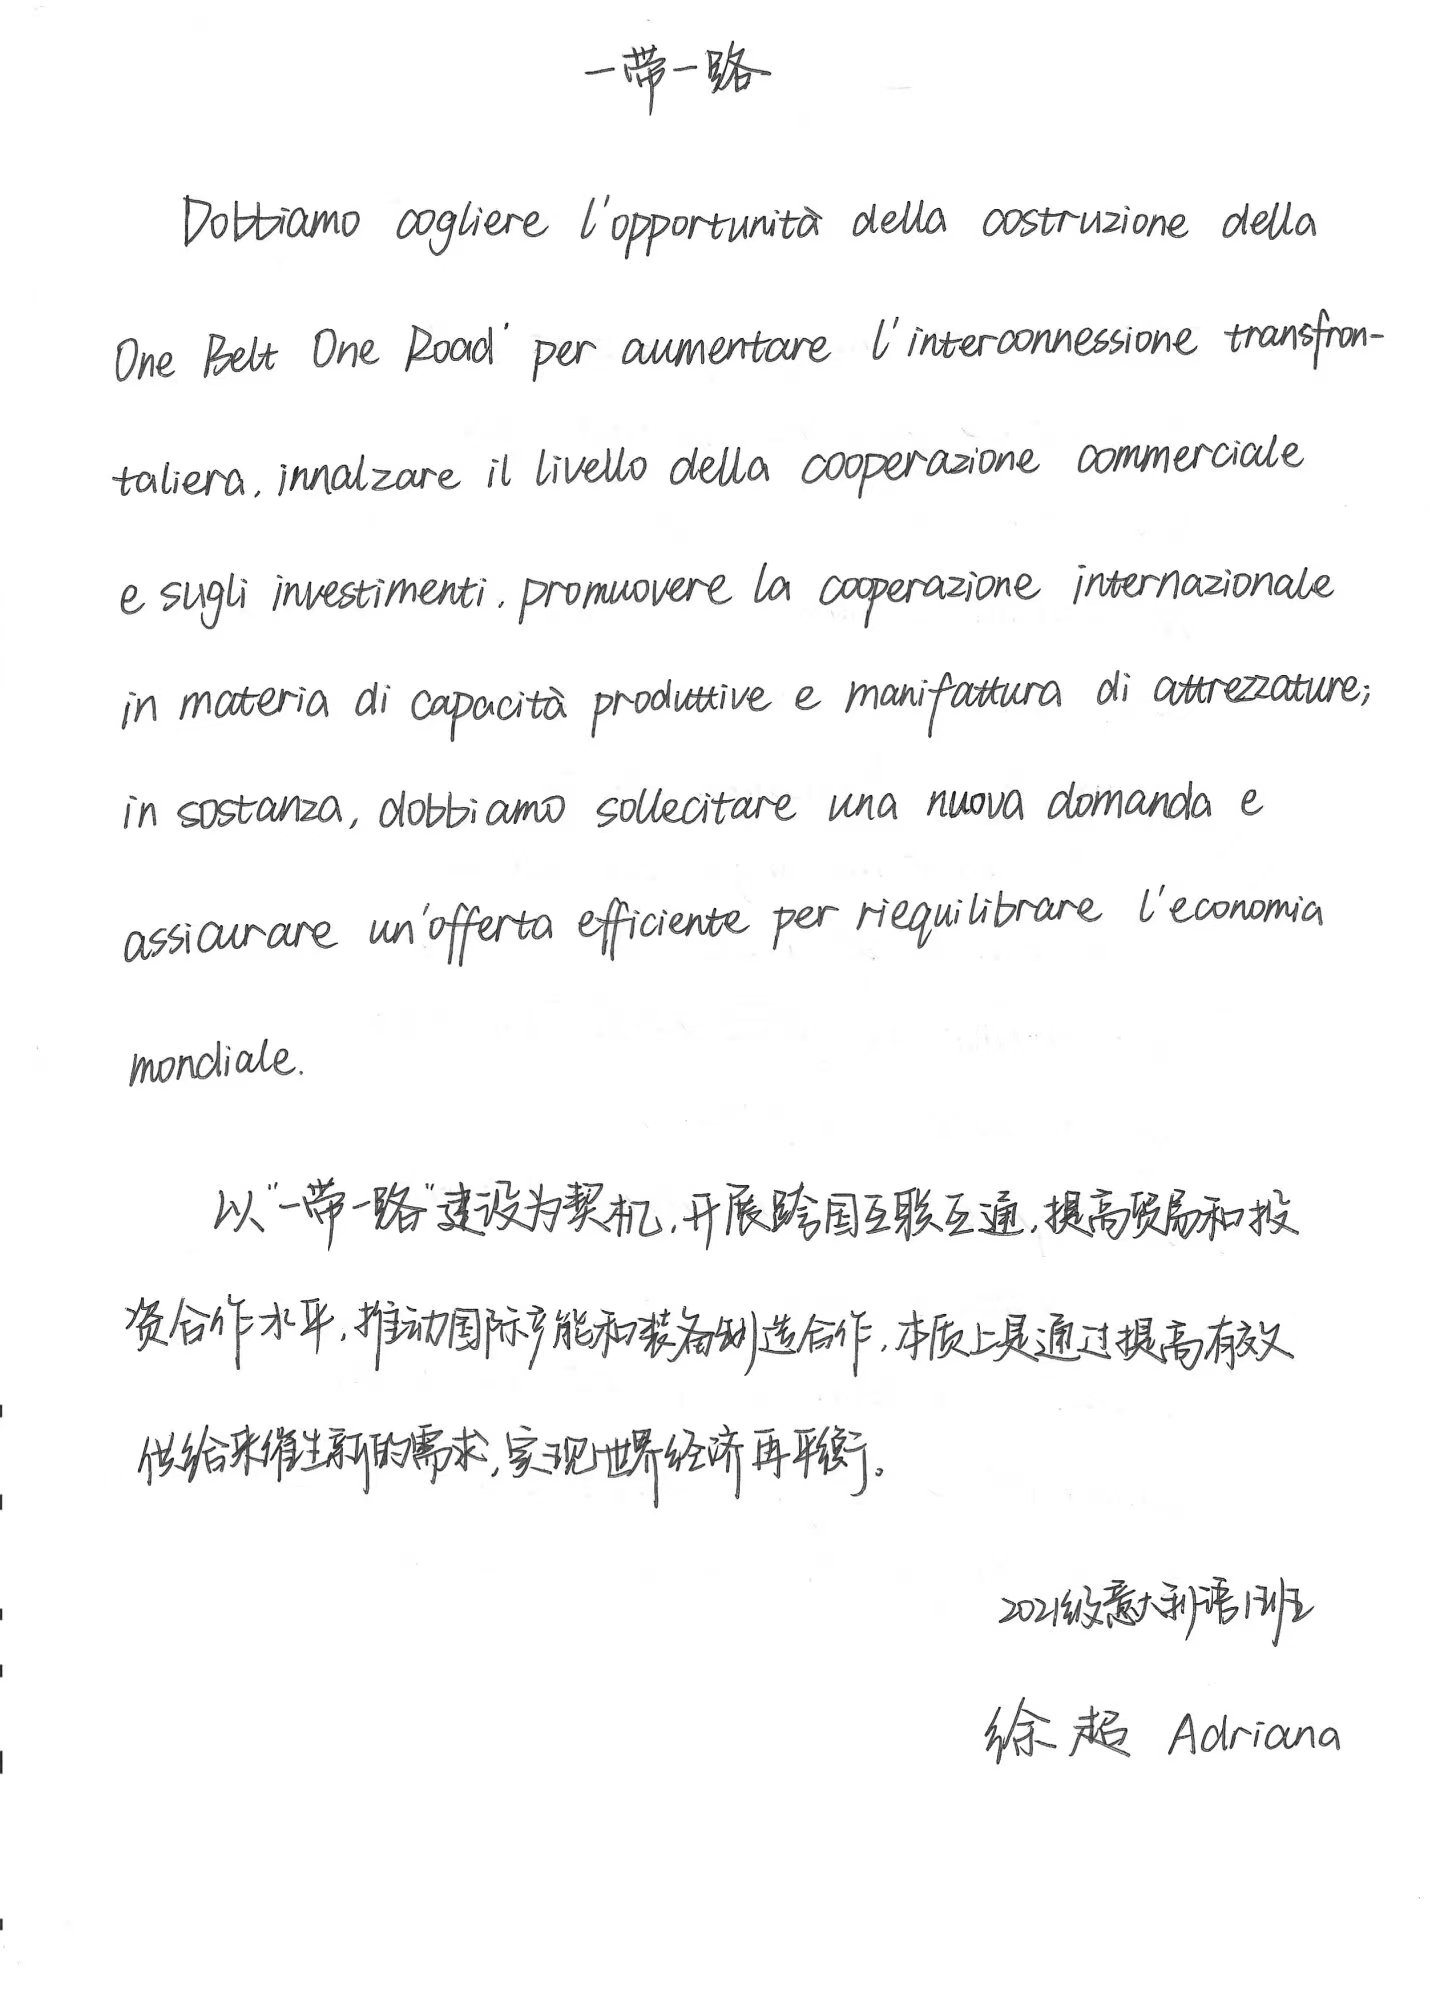 一带一路
Dobbiamo cogliere l'opportunità della costruzione della
One Belt One Road' per aumentare l'interconnessione transfron-
taliera, innalzare il livello della cooperazione commerciale
e sugli investimenti, promuovere la cooperazione internazionale
in materia di capacità produttive e manifattura di attrezzature;
in sostanza, dobbiamo sollecitare una nuova domanda e
assicurare un'offerta efficiente per riequilibrare l'economia
mondiale.
以"一带一路"建设为契机,开展跨国互联互通,提高贸易和投
资合作水平,推动国际产能和装备制造合作,本质上是通过提高有效
供给来催生新的需求,实现世界经济再平衡。
2021级意大利语1班
徐超 Adriana